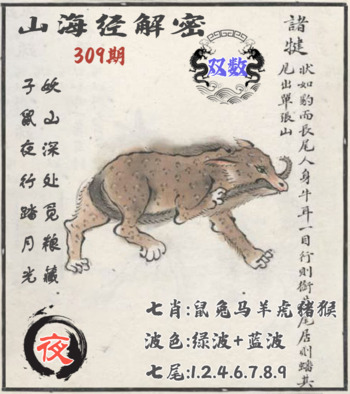 山海经解密
309期
双数
諸犍
状如豹而長尾人身牛耳一目行則銜其尾居則蟠其
尾出單張山
妖山深处觅粮藏
子鼠夜行踏月光
夜
七肖:鼠兔马羊虎猪猴
波色:绿波+蓝波
七尾:1.2.4.6.7.8.9